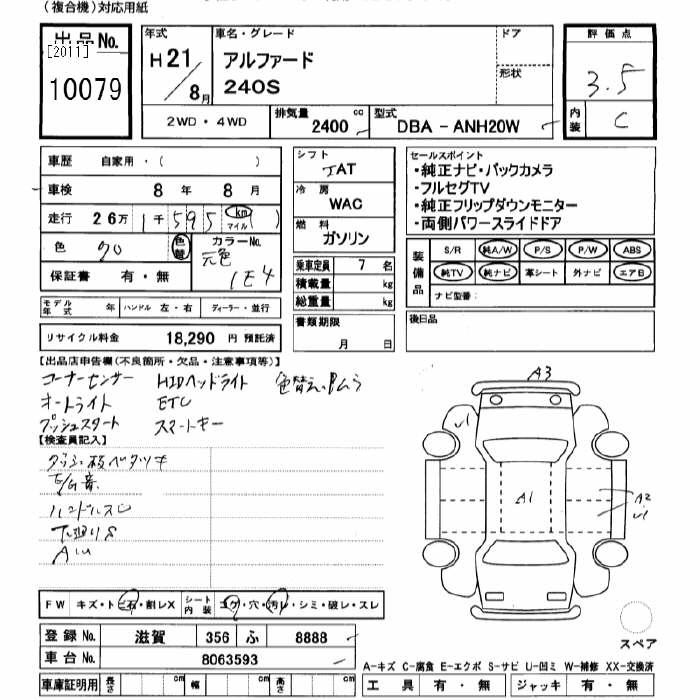 (複合機)対応用紙
出品No.
[2011]
10079
年式
H21/8月
車名・グレード
アルファード
240S
ドア
形状
評価点
3.5
内装
C
2WD・4WD
排気量
2400 cc
型式
DBA - ANH20W
車歴 自家用・( )
車検 8年 8月
走行 26万1千595 km マイル( )
色 クロ 色替 カラーNo. 元色 1E4
保証書 有・無
シフト
IAT
冷房
WAC
燃料
ガソリン
乗車定員 7名
積載量 kg
総重量 kg
セールスポイント
・純正ナビ・バックカメラ
・フルセグTV
・純正フリップダウンモニター
・両側パワースライドドア
装備品
S/R 純A/W P/S P/W ABS
純TV 純ナビ 革シート 外ナビ エアB
ナビ型番:
モデル年式 年 ハンドル 左・右 ディーラー・並行
リサイクル料金 18,290 円 預託済
書類期限
月 日
後日品
【出品店申告欄(不良箇所・欠品・注意事項等)】
コーナーセンサー HIDヘッドライト 色替え、色ムラ
オートライト ETC
プッシュスタート スマートキー
【検査員記入】
E/G音
ハンドルスレ
下廻りS
AW
A3
U1
A1
A2
U1
FW キズ・トビ石・割レX シート内装 コゲ・穴・汚レ・シミ・破レ・スレ
登録No. 滋賀 356 ふ 8888
車台No. 8063593
車庫証明用 長さ cm 幅 cm 高さ cm
スペア
A-キズ C-腐食 E-エクボ S-サビ U-凹ミ W-補修 XX-交換済
工具 有・無 ジャッキ 有・無